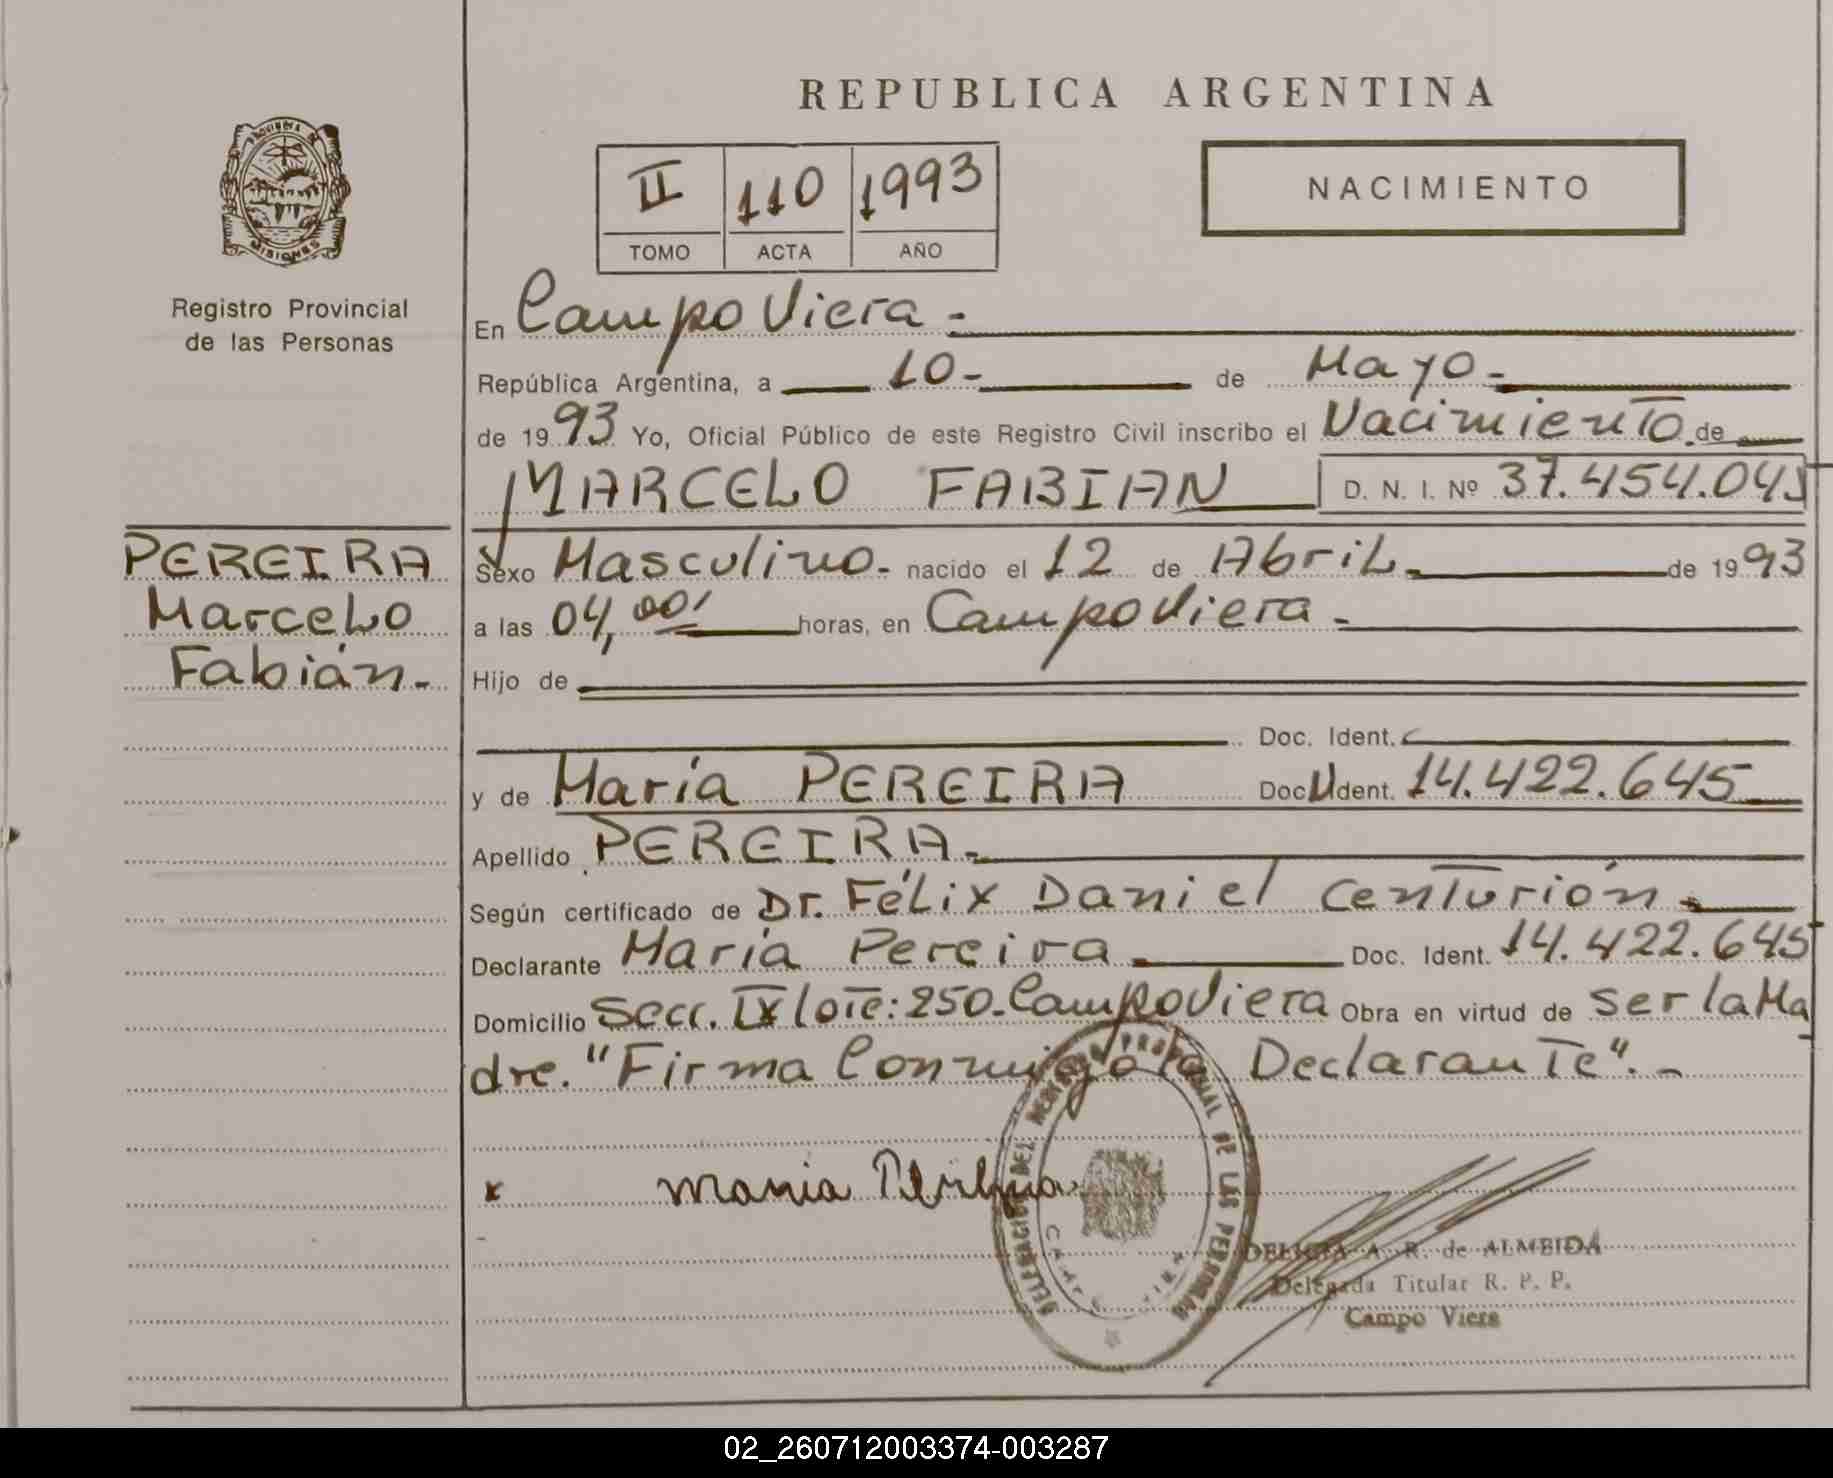 REPUBLICA ARGENTINA
PROVINCIA DE
MISIONES
Registro Provincial
de las Personas
II 110 1993
TOMO ACTA AÑO
NACIMIENTO
En Campo Viera.-
República Argentina, a 10- de Mayo.-
de 1993 Yo, Oficial Público de este Registro Civil inscribo el Nacimiento de
MARCELO FABIAN D. N. I. Nº 37.454.045
PEREIRA
Marcelo
Fabián.-
Sexo Masculino.- nacido el 12 de Abril.- de 1993
a las 04,00' horas, en Campo Viera.-
Hijo de
Doc. Ident.
y de María PEREIRA Doc. Ident. 14.422.645
Apellido PEREIRA.-
Según certificado de Dr. Félix Daniel Centurión.-
Declarante María Pereira.- Doc. Ident. 14.422.645
Domicilio Secc. IX lote: 250.-Campo Viera Obra en virtud de ser la Ma
dre. "Firma Conmigo la Declarante".-
x maria
DELEGACION DEL REGISTRO PROVINCIAL DE LAS PERSONAS
DELICIA A. R. de ALMEIDA
Delegada Titular R. P. P.
Campo Viera
02_260712003374-003287